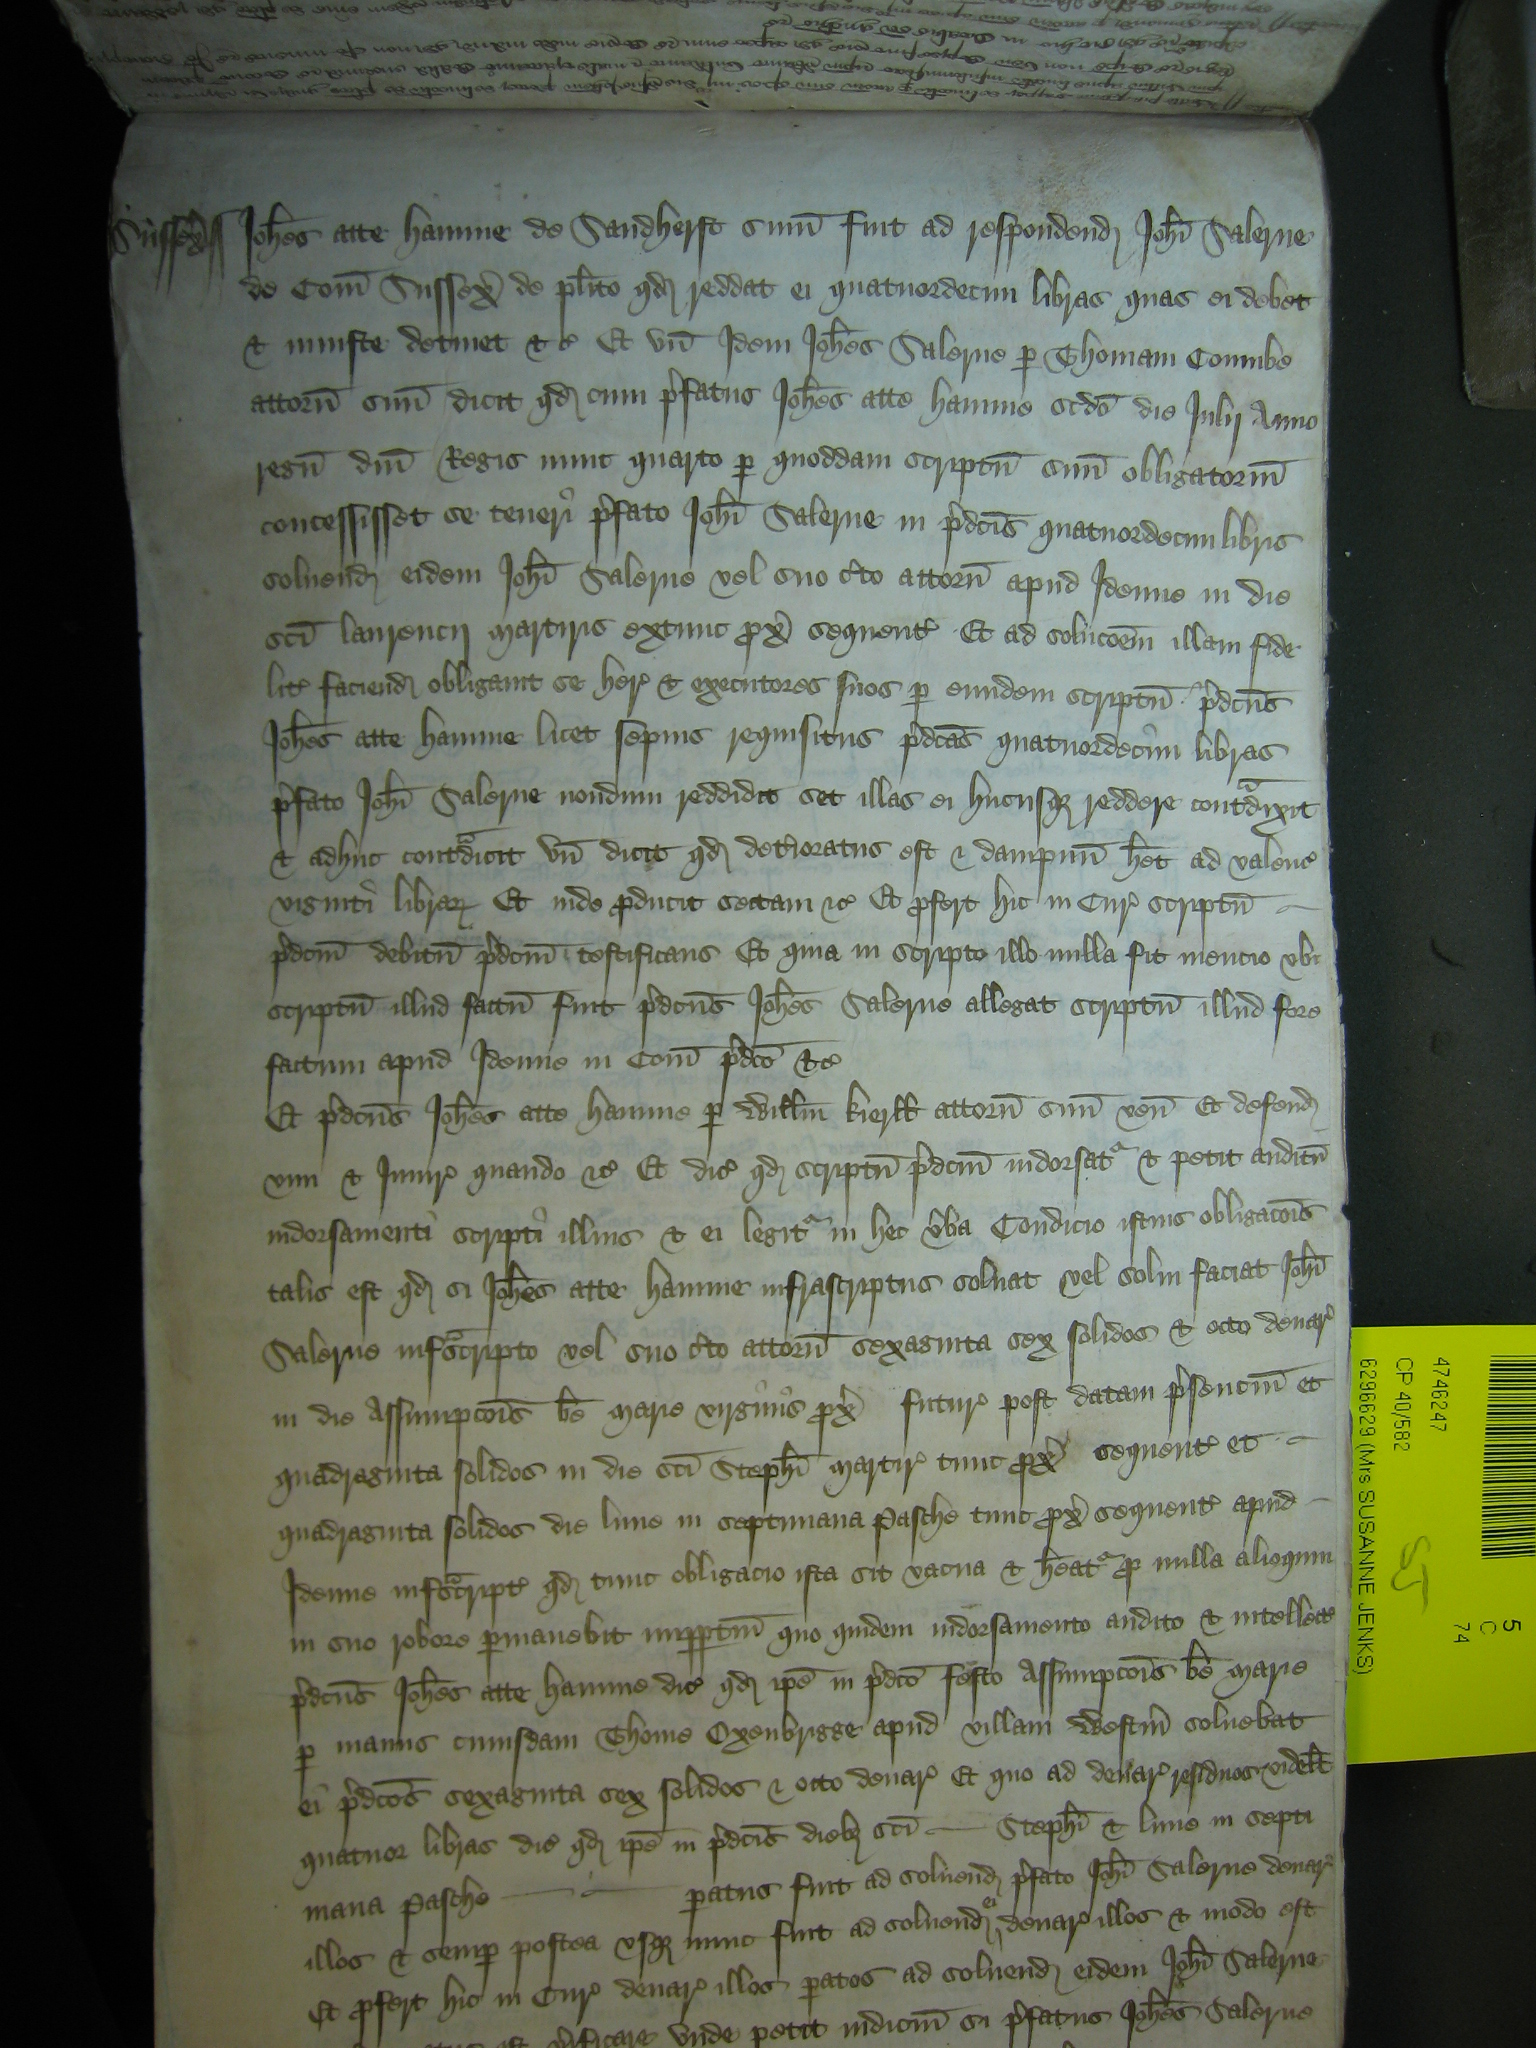 Sussex̃ Joh̃es atte hamme de Sandherst sum̃ fuit ad respondend̃ Joh̃i Salerne
de Com̃ Sussex̃ de pl̃ito qd̃ reddat ei quatuordecim libras quas ei debet
& iniuste detinet &c̃ Et vn̄ Idem Joh̃es Salerne p Thomam Coumbe
attorñ suũ dicit qd̃ cum p̃fatus Joh̃es atte hamme scd̃o die Julij Anno
regñ dñi Regis nunc quarto p quoddam scriptũ suũ obligatoriũ
concessisset se teneri p̃fato Joh̃i Salerne in p̃dc̃is quatuordecim libris
soluend̃ eidem Joh̃i Salerne vel suo c̃to attorñ apud Idenne in die
sc̃i laurencij martiris extunc px̃ sequent̃ Et ad soluc̃oem illam fide
lit̃ faciend̃ obligauit se her̃ & executores suos p eundem scriptũ p̃dc̃us
Joh̃es atte hamme licet sepius requisitus p̃dc̃as quatuordecim libras
p̃fato Joh̃i Salerne nondum reddidit set illas ei hucusq̃ reddere contᵃdixit
& adhuc contᵃdicit vn̄ dicit qd̃ det̃ioratus est & dampnũ h̃et ad valenc̃
viginti librar̃ Et inde p̃ducit sectam &c̃ Et p̃fert hic in Cur̃ scriptũ
p̃dc̃m debitũ p̃dc̃m testificans Et quia in scripto illo nulla fit mencio vbi
scriptũ illud factũ fuit p̃dc̃us Joh̃es Salerne allegat scriptũ illud fore
factum apud Idenne in Com̃ p̃dc̃o &c̃
Et p̃dc̃us Joh̃es atte hamme p Will̃m attorñ suũ veñ Et defend̃
vim & Iniur̃ quando &c̃ Et dic̃ qd̃ scriptũ p̃dc̃m indorsatᵃ & petit auditũ
indorsamenti scripti illius & ei legitᵃ in hec ṽba Condicio istius obligac̃ois
talis est qd̃ si Joh̃es atte hamme infrascriptus soluat vel solui faciat Joh̃i
Salerne infᵃscripto vel suo c̃to attorñ sexaginta sex solidos & octo denar̃
in die Assumpc̃ois b̃e marie virginis px̃ futur̃ post datam p̃senciũ et
quadraginta solidos in die sc̃i Steph̃i martir̃ tunc px̃ sequent̃ et
quadraginta solidos die lune in septimana Pasche tunc px̃ sequent̃ apud
Idenne infᵃscript̃ qd̃ tunc obligacio ista sit vacua & h̃eatᵃ p nulla alioquin
in suo robore pmanebit imppetuũ quo quidem indorsamento audito & intellect̃
p̃dc̃us Joh̃es atte hamme dic̃ qd̃ ip̃e in p̃dc̃o festo Assumpc̃ois b̃e marie
p manus cuiusdam Thome Oxenbrigge apud villam Westm̃ soluebat
ei p̃dc̃os sexaginta sex solidos & octo denar̃ Et quo ad denar̃ residuos videl̃t
quatuor libras dic̃ qd̃ ip̃e in p̃dc̃is dieb̃ sc̃i Steph̃i & lune in septi
mana Pasche patus fuit ad soluend̃ p̃fato Joh̃i Salerne denar̃
illos & semp postea vsq̃ nunc fuit ad soluend̃ ei denar̃ illos & modo est
Et p̃fert hic in Cur̃ denar̃ illos patos ad soluend̃ eidem Joh̃i Salerne
est ṽificare vnde petit iudiciũ si p̃fatus Joh̃es Salerne
4746247
CP 40/582
6296629 (Mrs SUSANNE JENKS)
SJ
5
C
74